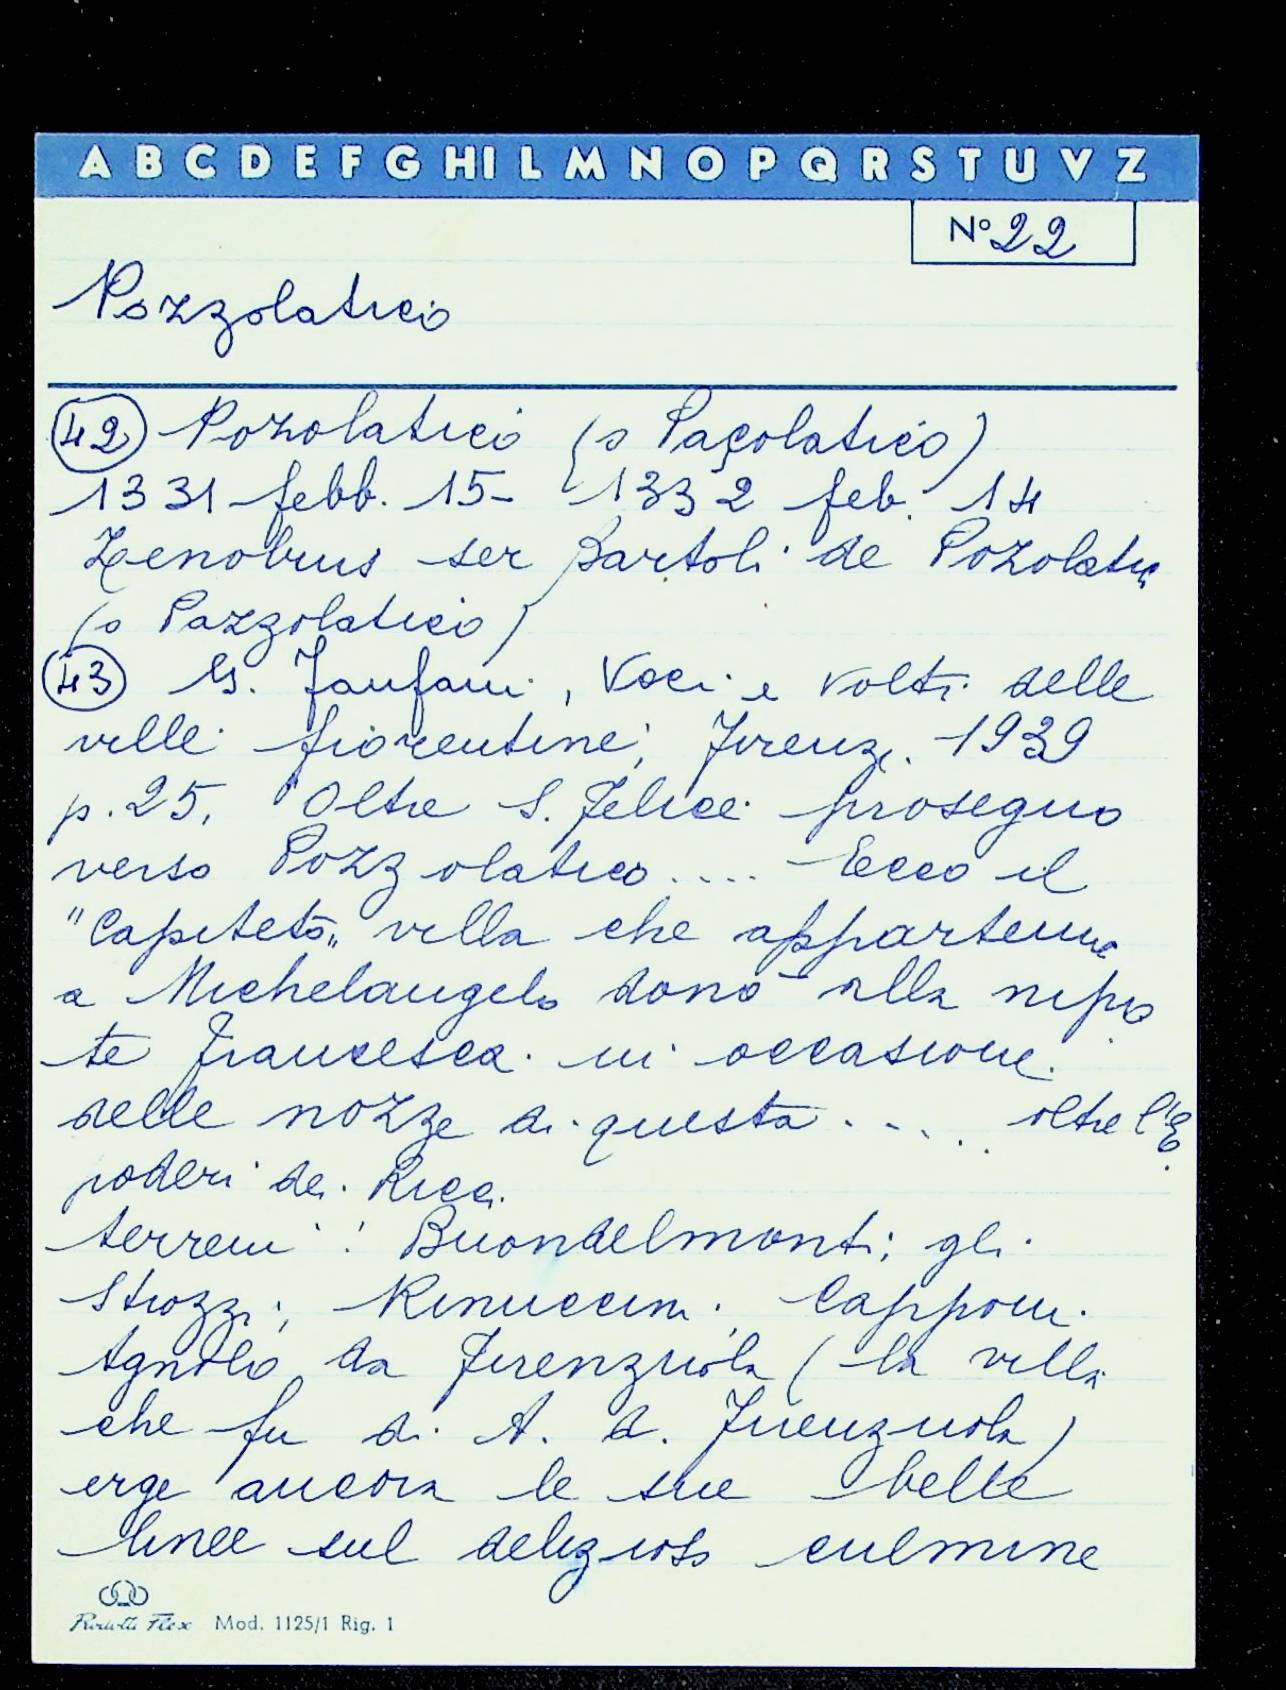 A B C D E F G H I L M N O P Q R S T U V Z
N° 22
Pozzolatico
42 Pozolatico (o Paçolatico)
1331 febb. 15 - 1332 feb. 14
Zenobius ser Bartoli de Pozolatic
(o Pazzolatico)
43 G. Fanfani, Voci e volti delle
ville fiorentine, Firenze. 1939
p. 25. Oltre S. Felice proseguo
verso Pozzolatico .... Ecco il
"Capiteto" villa che appartenne
a Michelangelo donò alla nipo
te Francesca in occasione
delle nozze di questa .... oltre l'E
poderi dei Ricci
terreni i Buondelmonti; gli
Strozzi; Rinuccini; Capponi.
Agnolo da Firenzuola (la villa
che fu di A. d. Firenzuola)
erge ancora le sue belle
linee sul delizioso culmine
Mod. 1125/1 Rig. 1